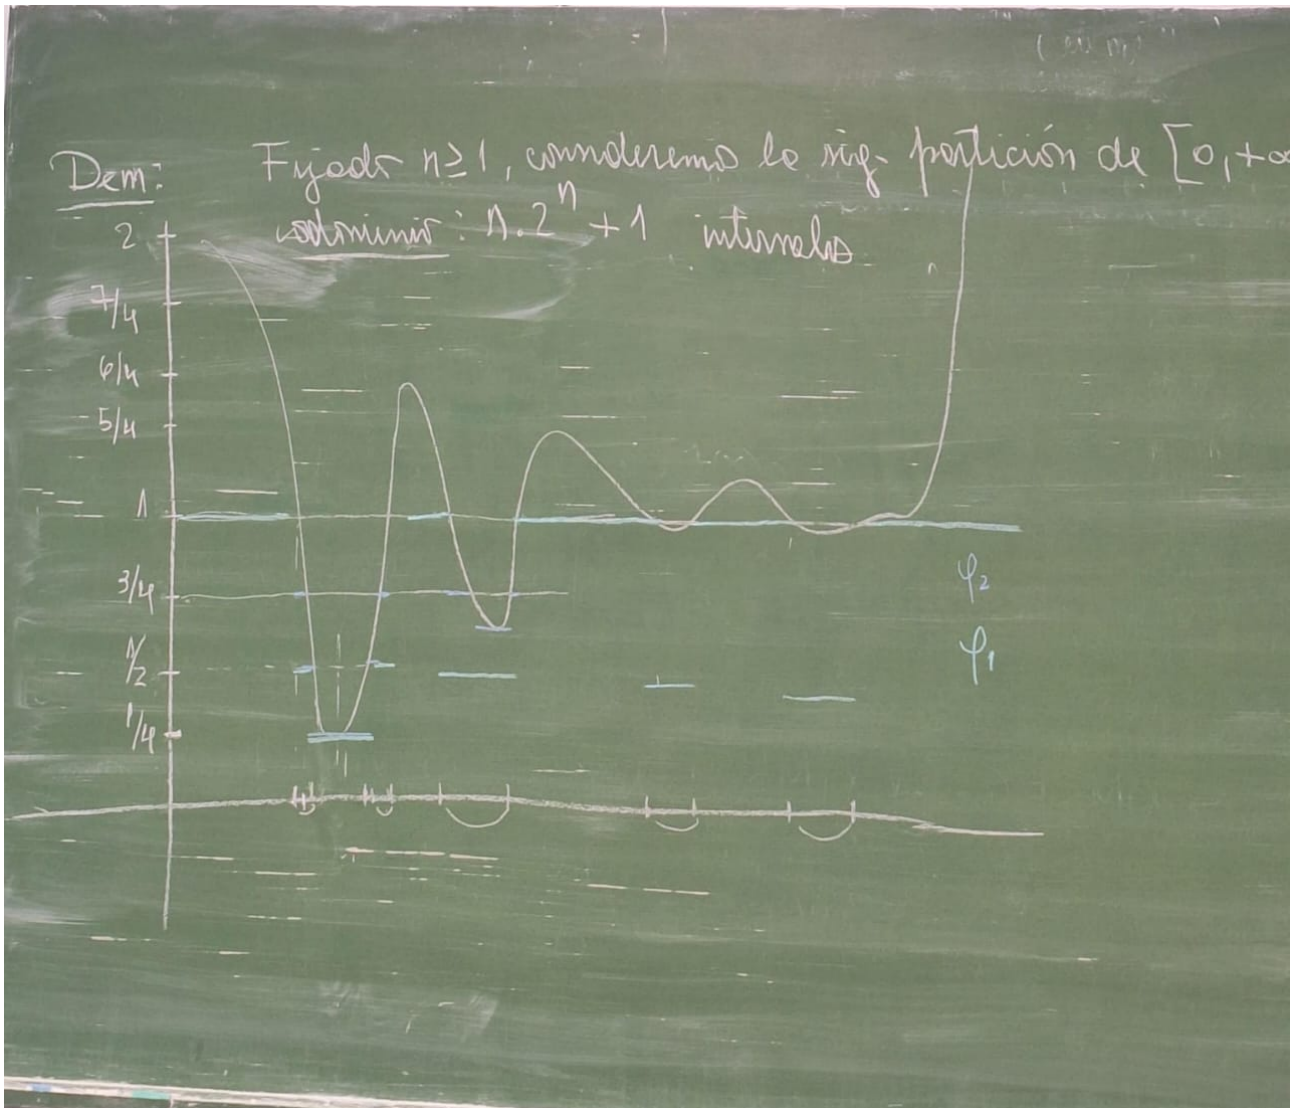 Dem: Fijado n ≥ 1, consideremos la sig. partición de [0, +∞
codominio: n.2ⁿ + 1 intervalos
2
7/4
6/4
5/4
1
3/4
1/2
1/4
φ₂
φ₁